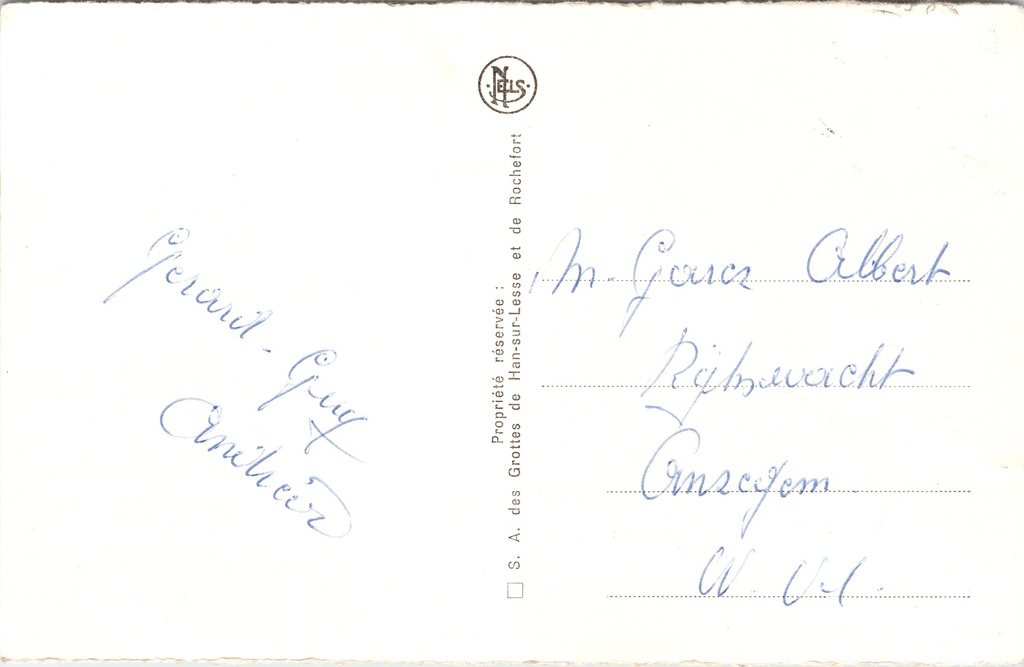 Gerard - Guy
Andreà
NELS
Propriété réservée :
S. A. des Grottes de Han-sur-Lesse et de Rochefort
M. Garcz Albert
Rijkswacht
Anzegem
W. Vl.